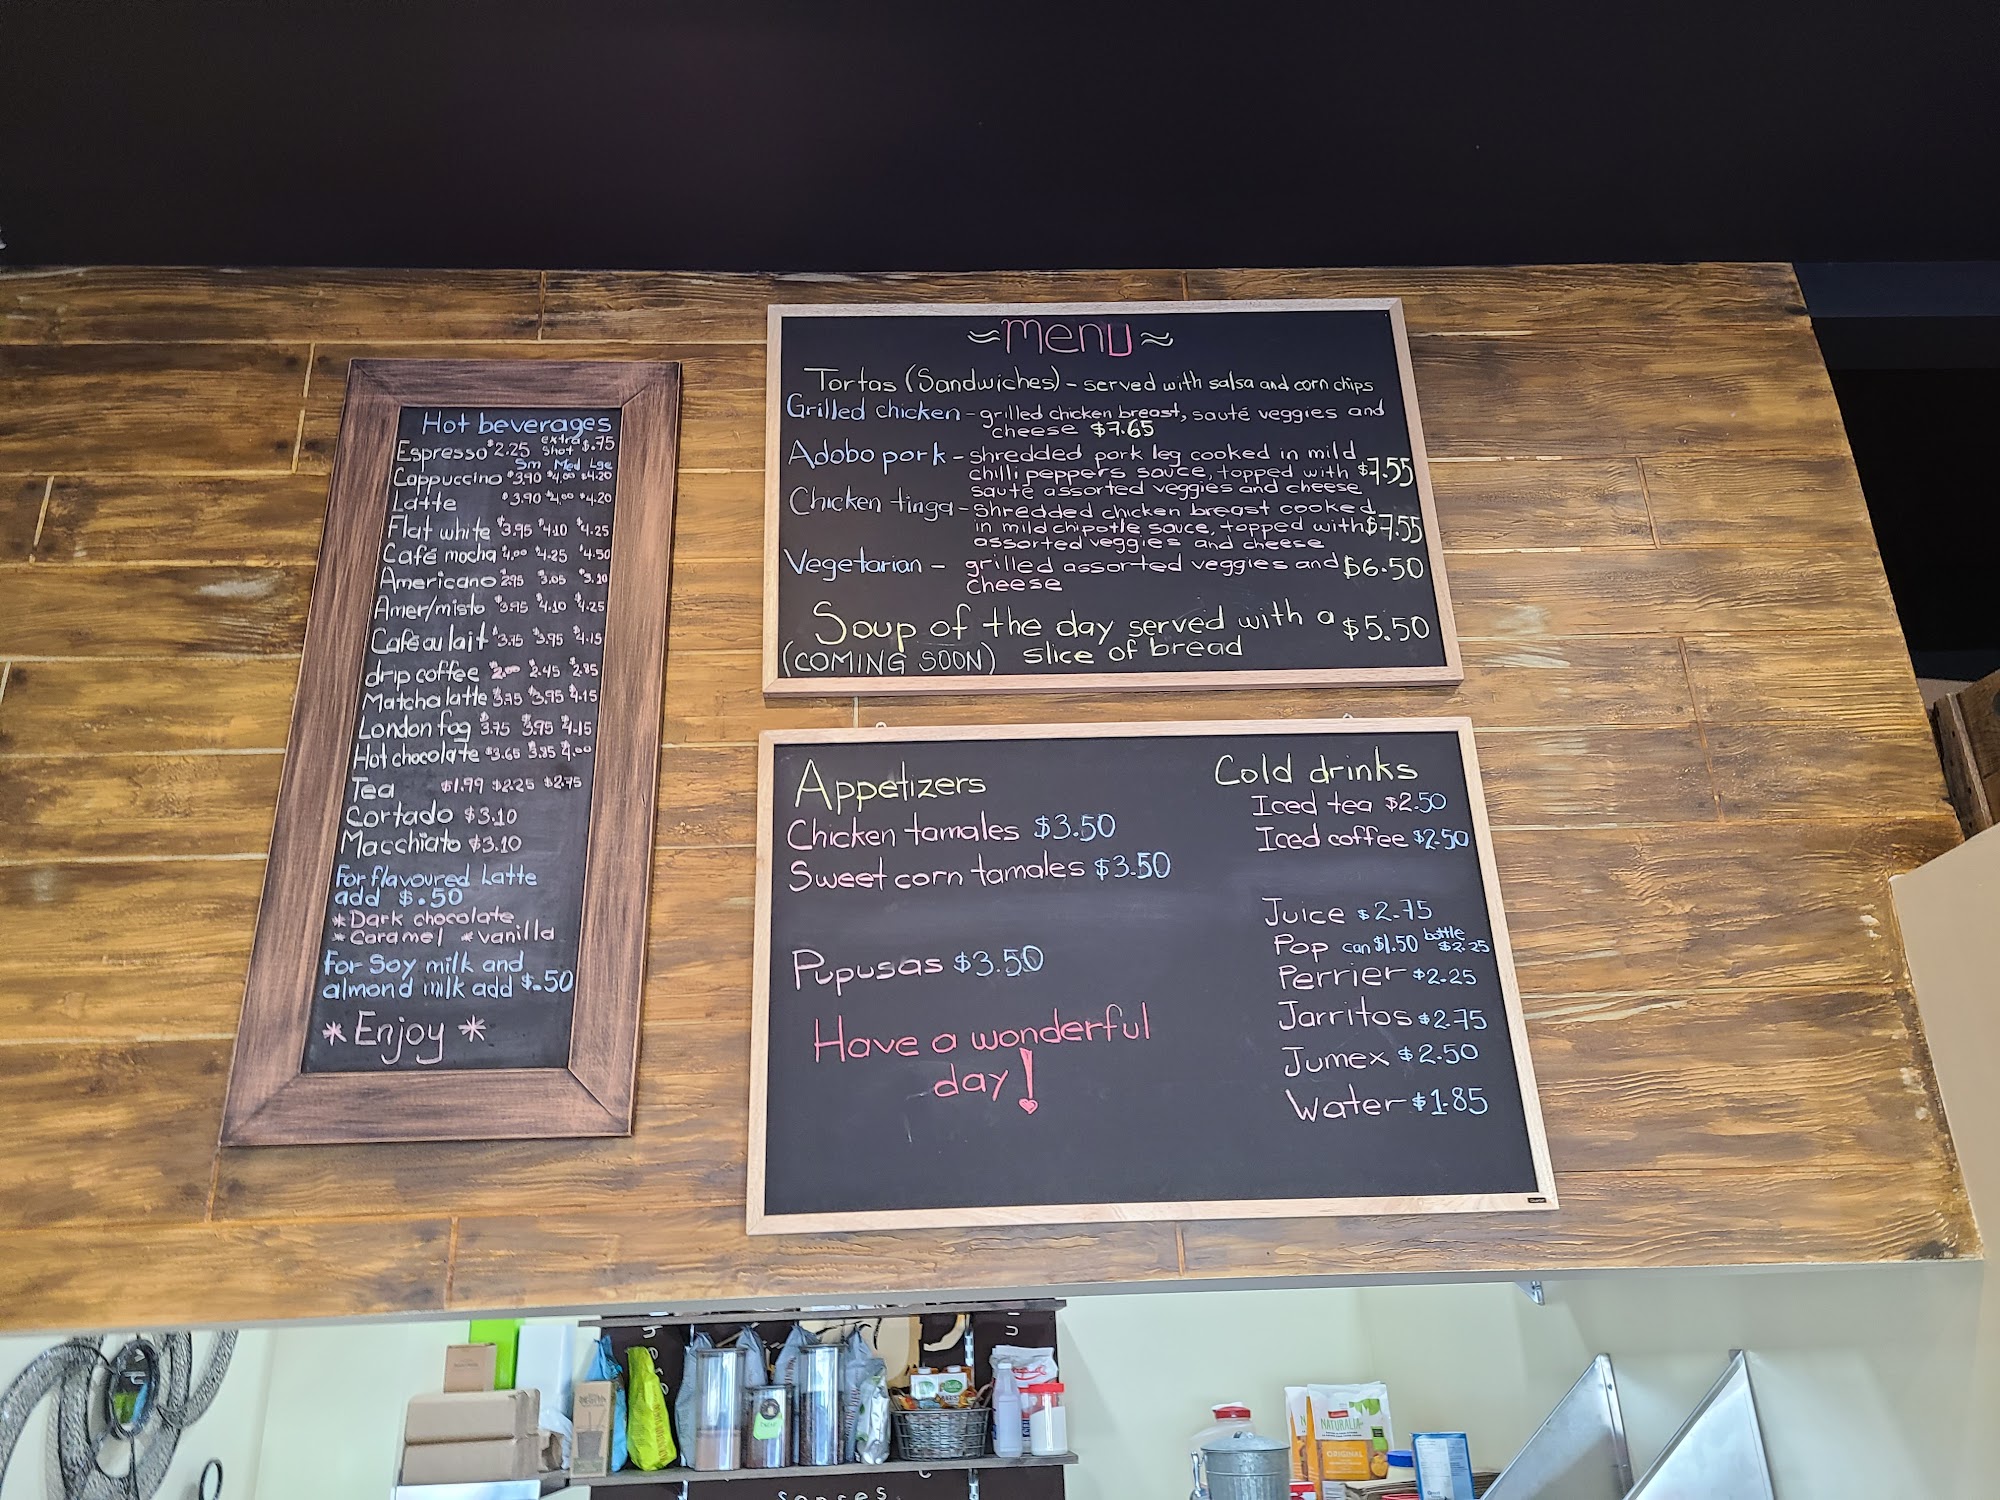 Hot beverages
Espresso $2.25 extra shot $.75
Sm Med Lge
Cappuccino $3.90 $4.00 $4.20
Latte $3.90 $4.00 $4.20
Flat white $3.95 $4.10 $4.25
Café mocha $4.00 $4.25 $4.50
Americano $2.95 $3.05 $3.10
Amer/misto $3.95 $4.10 $4.25
Café au lait $3.75 $3.95 $4.15
drip coffee $2.00 $2.45 $2.85
Matcha latte $3.75 $3.95 $4.15
London fog $3.75 $3.95 $4.15
Hot chocolate $3.65 $3.85 $4.00
Tea $1.99 $2.25 $2.75
Cortado $3.10
Macchiato $3.10
For flavoured Latte
add $.50
*Dark chocolate
*Caramel *vanilla
For Soy milk and
almond milk add $.50
* Enjoy *
~Menu~
Tortas (Sandwiches) - served with salsa and corn chips
Grilled chicken - grilled chicken breast, sauté veggies and
cheese $7.65
Adobo pork - shredded pork leg cooked in mild
chilli peppers sauce, topped with $7.55
sauté assorted veggies and cheese
Chicken tinga - shredded chicken breast cooked
in mild chipotle sauce, topped with $7.55
assorted veggies and cheese
Vegetarian - grilled assorted veggies and $6.50
cheese
Soup of the day served with a $5.50
(COMING SOON) slice of bread
Appetizers
Chicken tamales $3.50
Sweet corn tamales $3.50
Pupusas $3.50
Have a wonderful
day!
Cold drinks
Iced tea $2.50
Iced coffee $2.50
Juice $2.75
Pop can $1.50 bottle $2.25
Perrier $2.25
Jarritos $2.75
Jumex $2.50
Water $1.85
NATURALIA
ORIGINAL